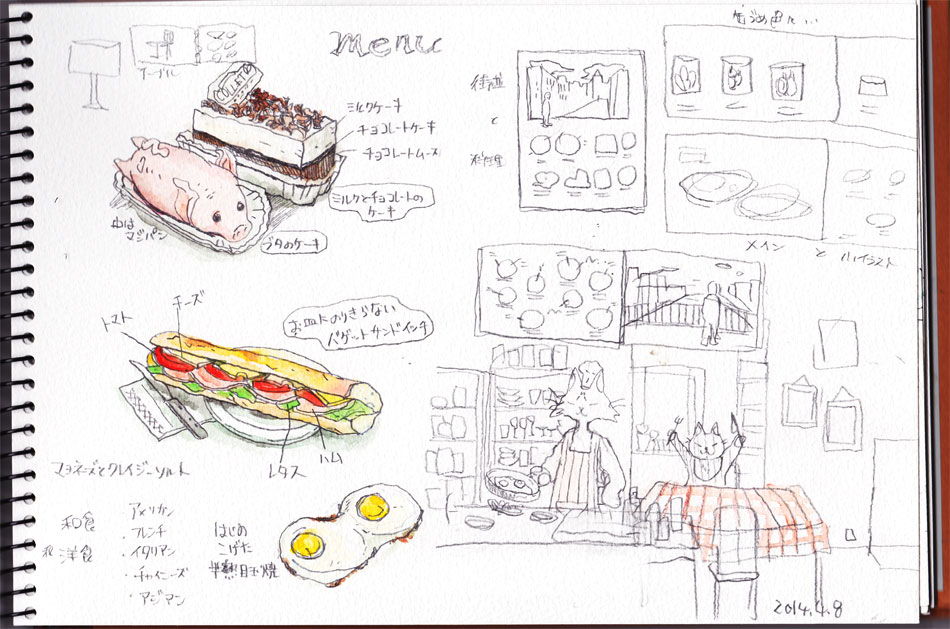 menu
テーブル
ミルクケーキ
チョコレートケーキ
チョコレートムース
ミルクとチョコレートの
ケーキ
中は
マジパン
ブタのケーキ
チーズ
トマト
お皿にのりきらない
バゲットサンドイッチ
レタス
ハム
マヨネーズとクレイジーソルト
和食
洋食
アメリカン
・フレンチ
・イタリアン
・チャイニーズ
・アジアン
はじめ
こげた
半熟目玉焼
街並
と
料理
缶詰画に...
メイン と 小イラスト
2014.4.8